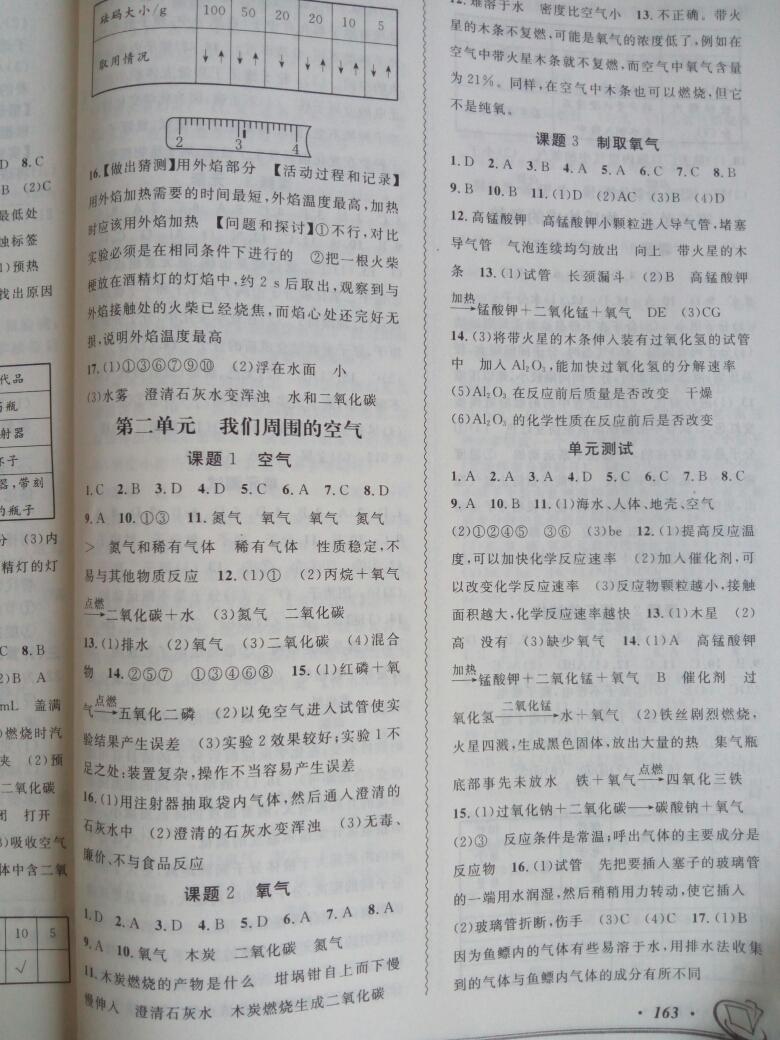 D 8.C
B (2)C
最低处
蚀标签
1)预热
找出原因
代品
药瓶
射器
杯子
器,带刻
的瓶子
分 (3)内
精灯的灯
C 8.B
2)B A
mL 盖满
)燃烧时汽
夹 (2)预
二氧化碳
闭 打开
3)吸收空气
体中含二氧
10 5
√
砝码大小/g 100 50 20 20 10 5
取用情况 ↓↑ ↓↑ ↓ ↓↑ ↓↑ ↓↑
2 3 4
16.【做出猜测】用外焰部分 【活动过程和记录】
用外焰加热需要的时间最短,外焰温度最高,加热
时应该用外焰加热 【问题和探讨】①不行,对比
实验必须是在相同条件下进行的 ②把一根火柴
梗放在酒精灯的灯焰中,约2s后取出,观察到与
外焰接触处的火柴已经烧焦,而焰心处还完好无
损,说明外焰温度最高
17.(1)①③⑥⑦⑨⑩ (2)浮在水面 小
(3)水雾 澄清石灰水变浑浊 水和二氧化碳
第二单元 我们周围的空气
课题1 空气
1.C 2.B 3.D 4.D 5.C 6.A 7.C 8.D
9.A 10.①③ 11.氮气 氧气 氧气 氮气
> 氮气和稀有气体 稀有气体 性质稳定,不
易与其他物质反应 12.(1)① (2)丙烷+氧气
点燃
→二氧化碳+水 (3)氮气 二氧化碳
13.(1)排水 (2)氧气 (3)二氧化碳 (4)混合
物 14.②⑤⑦ ①③④⑥⑧ 15.(1)红磷+氧
气 点燃→五氧化二磷 (2)以免空气进入试管使实
验结果产生误差 (3)实验2效果较好;实验1不
足之处:装置复杂,操作不当容易产生误差
16.(1)用注射器抽取袋内气体,然后通入澄清的
石灰水中 (2)澄清的石灰水变浑浊 (3)无毒、
廉价、不与食品反应
课题2 氧气
1.D 2.A 3.D 4.B 5.D 6.A 7.A 8.A
9.A 10.氧气 木炭 二氧化碳 氮气
11.木炭燃烧的产物是什么 坩埚钳自上而下慢
慢伸入 澄清石灰水 木炭燃烧生成二氧化碳
12.难溶于水 密度比空气小 13.不正确。带火
星的木条不复燃,可能是氧气的浓度低了,例如在
空气中带火星木条就不复燃,而空气中氧气含量
为21%。同样,在空气中木条也可以燃烧,但它
不是纯氧。
课题3 制取氧气
1.D 2.A 3.B 4.A 5.A 6.C 7.C 8.B
9.B 10.B 11.(1)D (2)AC (3)B (4)D
12.高锰酸钾 高锰酸钾小颗粒进入导气管,堵塞
导气管 气泡连续均匀放出 向上 带火星的木
条 13.(1)试管 长颈漏斗 (2)B 高锰酸钾
加热
→锰酸钾+二氧化锰+氧气 DE (3)CG
14.(3)将带火星的木条伸入装有过氧化氢的试管
中 加入Al₂O₃,能加快过氧化氢的分解速率
(5)Al₂O₃在反应前后质量是否改变 干燥
(6)Al₂O₃的化学性质在反应前后是否改变
单元测试
1.A 2.A 3.A 4.D 5.C 6.C 7.B 8.C
9.A 10.B 11.(1)海水、人体、地壳、空气
(2)①②④⑤ ③⑥ (3)be 12.(1)提高反应温
度,可以加快化学反应速率 (2)加入催化剂,可
以改变化学反应速率 (3)反应物颗粒越小,接触
面积越大,化学反应速率越快 13.(1)木星 (2)
高 没有 (3)缺少氧气 14.(1)A 高锰酸钾
加热
→锰酸钾+二氧化锰+氧气 B 催化剂 过
氧化氢 二氧化锰→水+氧气 (2)铁丝剧烈燃烧,
火星四溅,生成黑色固体,放出大量的热 集气瓶
底部事先未放水 铁+氧气 点燃→四氧化三铁
15.(1)过氧化钠+二氧化碳→碳酸钠+氧气
(2)③ 反应条件是常温;呼出气体的主要成分是
反应物 16.(1)试管 先把要插入塞子的玻璃管
的一端用水润湿,然后稍稍用力转动,使它插入
(2)玻璃管折断,伤手 (3)C (4)C 17.(1)B
因为鱼鳔内的气体有些易溶于水,用排水法收集
到的气体与鱼鳔内气体的成分有所不同
· 163 ·